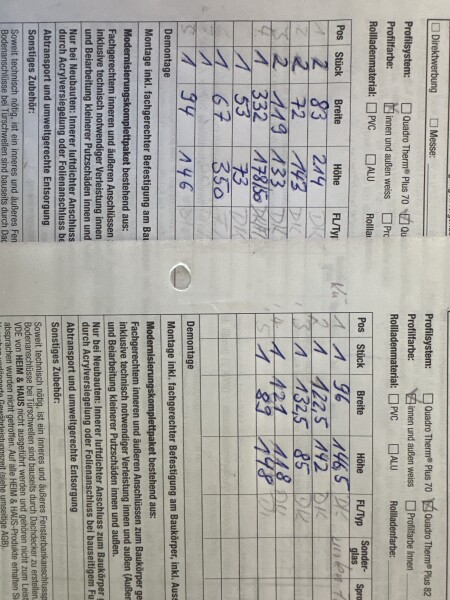 ☐ Direktwerbung ☐ Messe:
Profilsystem: ☐ Quadro Therm® Plus 70 ☒ Qu
Profilfarbe: ☒ innen und außen weiss ☐ Pro
Rollladenmaterial: ☐ PVC ☐ ALU Rollla
Pos Stück Breite Höhe FL/Typ
2 83 214 DK
2 72 143 DK
2 119 133 DK
1 332 178/50
1 53 73 DK
1 67 350
1
1 94 146
Demontage
Montage inkl. fachgerechter Befestigung am Bau
Modernisierungskomplettpaket bestehend aus:
Fachgerechtem inneren und äußeren Anschlüssen
inklusive technisch notwendiger Verleistung innen
und Beiarbeitung kleinerer Putzschäden innen und
Nur bei Neubauten: Innerer luftdichter Anschluss
durch Acrylversiegelung oder Folienanschluss be
Abtransport und umweltgerechte Entsorgung
Sonstiges Zubehör:
Soweit technisch nötig, ist ein inneres und äußeres Fen
Bodenanschlüsse bei Türschwellen sind bauseits durch Dac
Profilsystem: ☐ Quadro Therm® Plus 70 ☒ Quadro Therm® Plus 82
Profilfarbe: ☒ innen und außen weiss ☐ Profilfarbe innen
Rollladenmaterial: ☐ PVC ☐ ALU Rollladenfarbe:
Pos Stück Breite Höhe FL/Typ Sonder-glas Spro
Kü 1 1 96 146,5 DK
1 122,5 142 DK
1 132,5 85 DK
1 121 118 DK
1 89 148
Demontage
Montage inkl. fachgerechter Befestigung am Baukörper, inkl. Auss
Modernisierungskomplettpaket bestehend aus:
Fachgerechtem inneren und äußeren Anschlüssen zum Baukörper ge
inklusive technisch notwendiger Verleistung innen und außen (Außer
und Beiarbeitung kleinerer Putzschäden innen und außen.
Nur bei Neubauten: Innerer luftdichter Anschluss zum Baukörper
durch Acrylversiegelung oder Folienanschluss bei bauseitigem Fu
Abtransport und umweltgerechte Entsorgung
Sonstiges Zubehör:
Soweit technisch nötig, ist ein inneres und äußeres Fensterbankanschluss
Bodenanschlüsse bei Türschwellen sind bauseits durch Dachdecker zu erstellen
VDE von HEIM & HAUS nicht ausgeführt werden und gehören nicht zum Leist
absprachen wurden nicht getroffen. Auf alle HEIM & HAUS-Produkte erhalten S